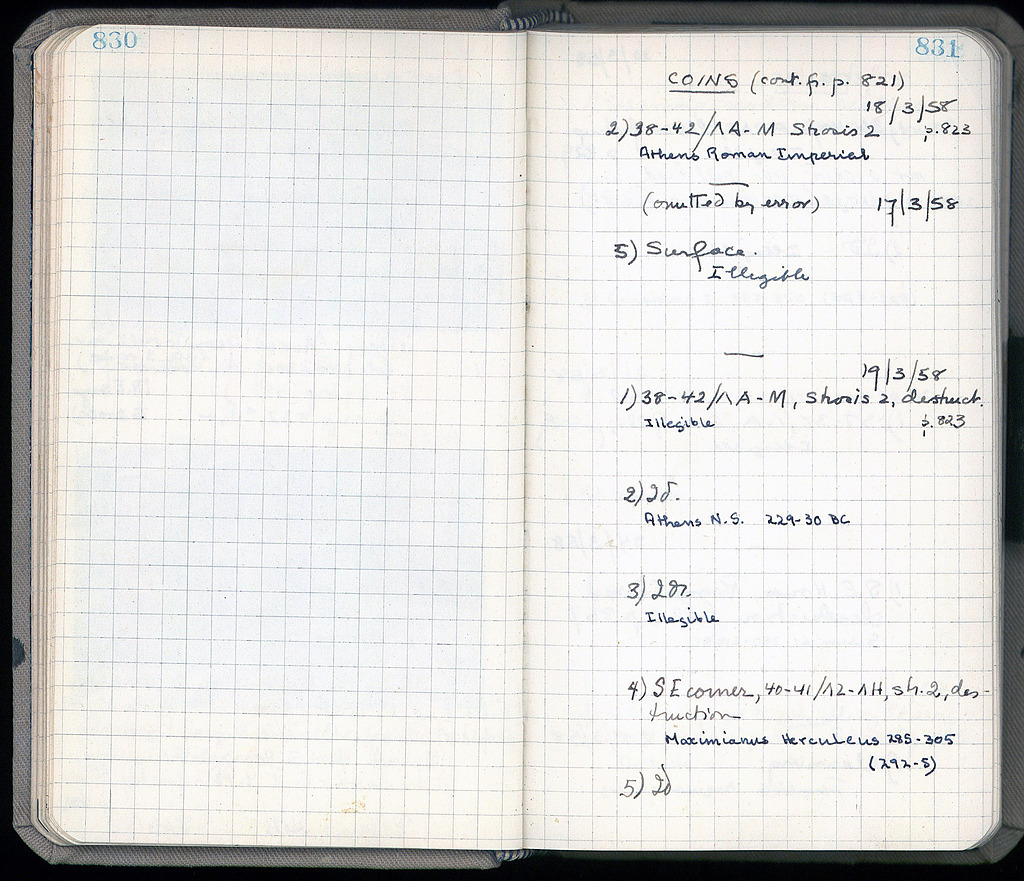 830
831
COINS (cont. fr. p. 821)
18/3/58
2) 38-42/ΛΑ-Μ Strosis 2 p.823
Athens Roman Imperial
(omitted by error) 17/3/58
5) Surface.
Illegible
19/3/58
1) 38-42/ΛΑ-Μ, Strosis 2, destruct.
Illegible p.823
2) Id.
Athens N.S. 229-30 BC
3) Id.
Illegible
4) SE corner, 40-41/ΛΖ-ΛΗ, str. 2, des-
truction
Maximianus Herculeus 285-305
(292-5)
5) Id